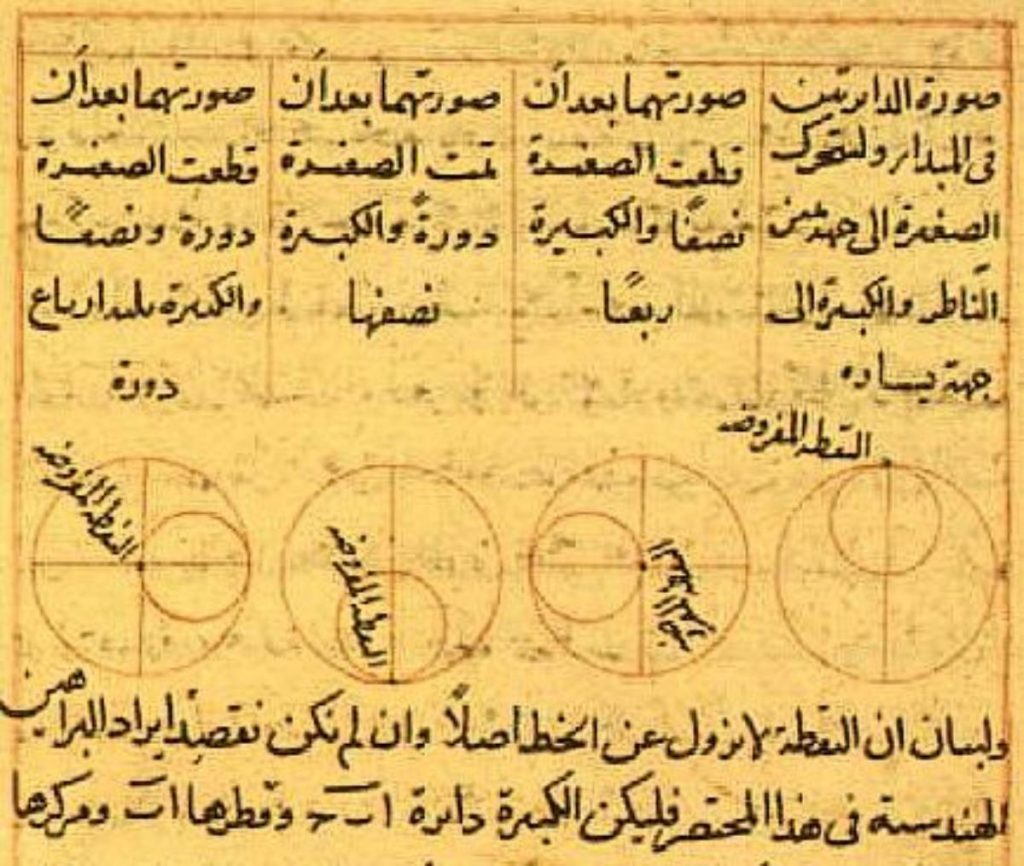 صورة الدائرتين
في المبدا ولتتحرك
الصغيرة الى جهة يمين
الناظر والكبيرة الى
جهة يساره
صورتهما بعد أن
قطعت الصغيرة
نصفًا والكبيرة
ربعًا
صورتهما بعد أن
تمت الصغيرة
دورةً والكبيرة
نصفها
صورتهما بعد أن
قطعت الصغيرة
دورة ونصفًا
والكبيرة ثلثة ارباع
دورة
النقطة المفروضة
النقطة المفروضة
النقطة المفروضة
النقطة المفروضة
ولبيان ان النقطة لا تزول عن الخط اصلًا وان لم نكن نقصد ايراد البراهين
الهندسية في هذا المختصر فليكن الكبيرة دائرة ا ب ج وقطرها ا ب ومركزها